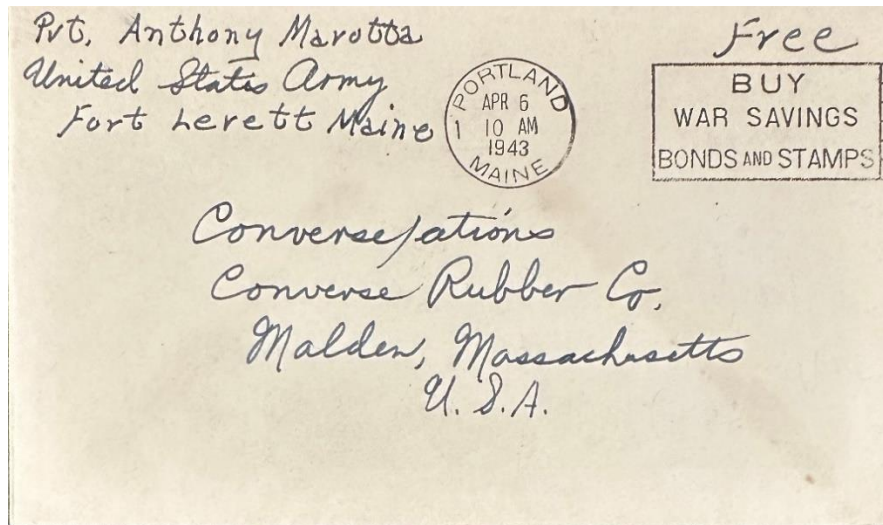 Pvt. Anthony Marotta
United States Army
Fort Lerett Maine
Free
PORTLAND
APR 6
1 10 AM
1943
MAINE
BUY
WAR SAVINGS
BONDS AND STAMPS
Converse/ations
Converse Rubber Co.
Malden, Massachusetts
U.S.A.